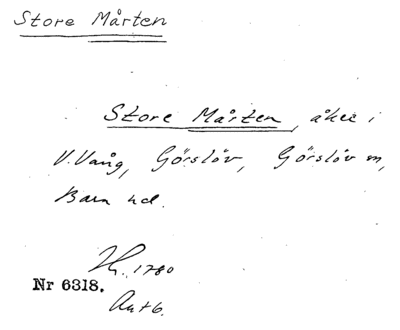 Store Mårten
Store Mårten, åker i
V. Vång, Görslöv, Görslöv sn,
Bara hd.
H. 1780
Nr 6318.
Ant 6.